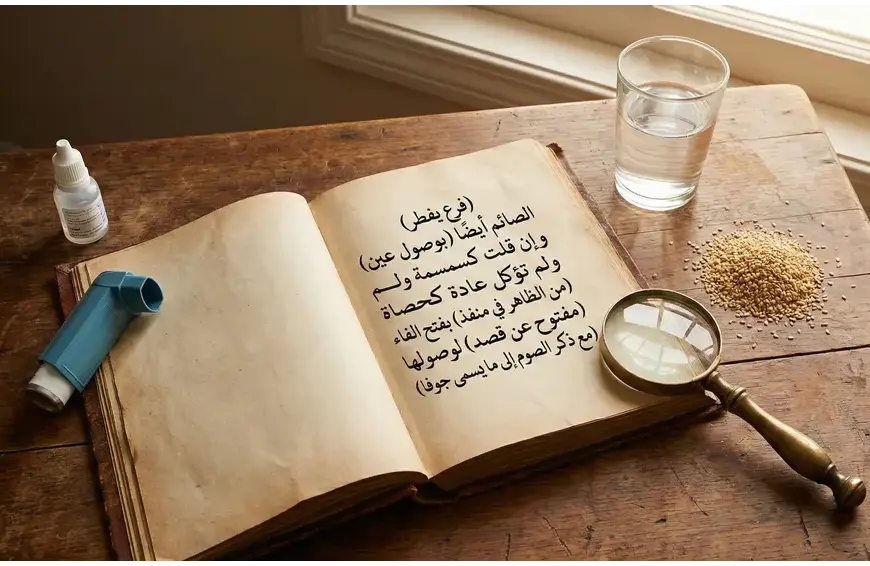 (فرع يفطر)
الصائم أيضًا (بوصول عين)
وإن قلت كسمسمة ولم
ولم تؤكل عادة كحصاة
(من الظاهر في منفذ) بفتح الفاء
(مفتوح عن قصد) لوصولها
(مع ذكر الصوم إلى ما يسمى جوفا)